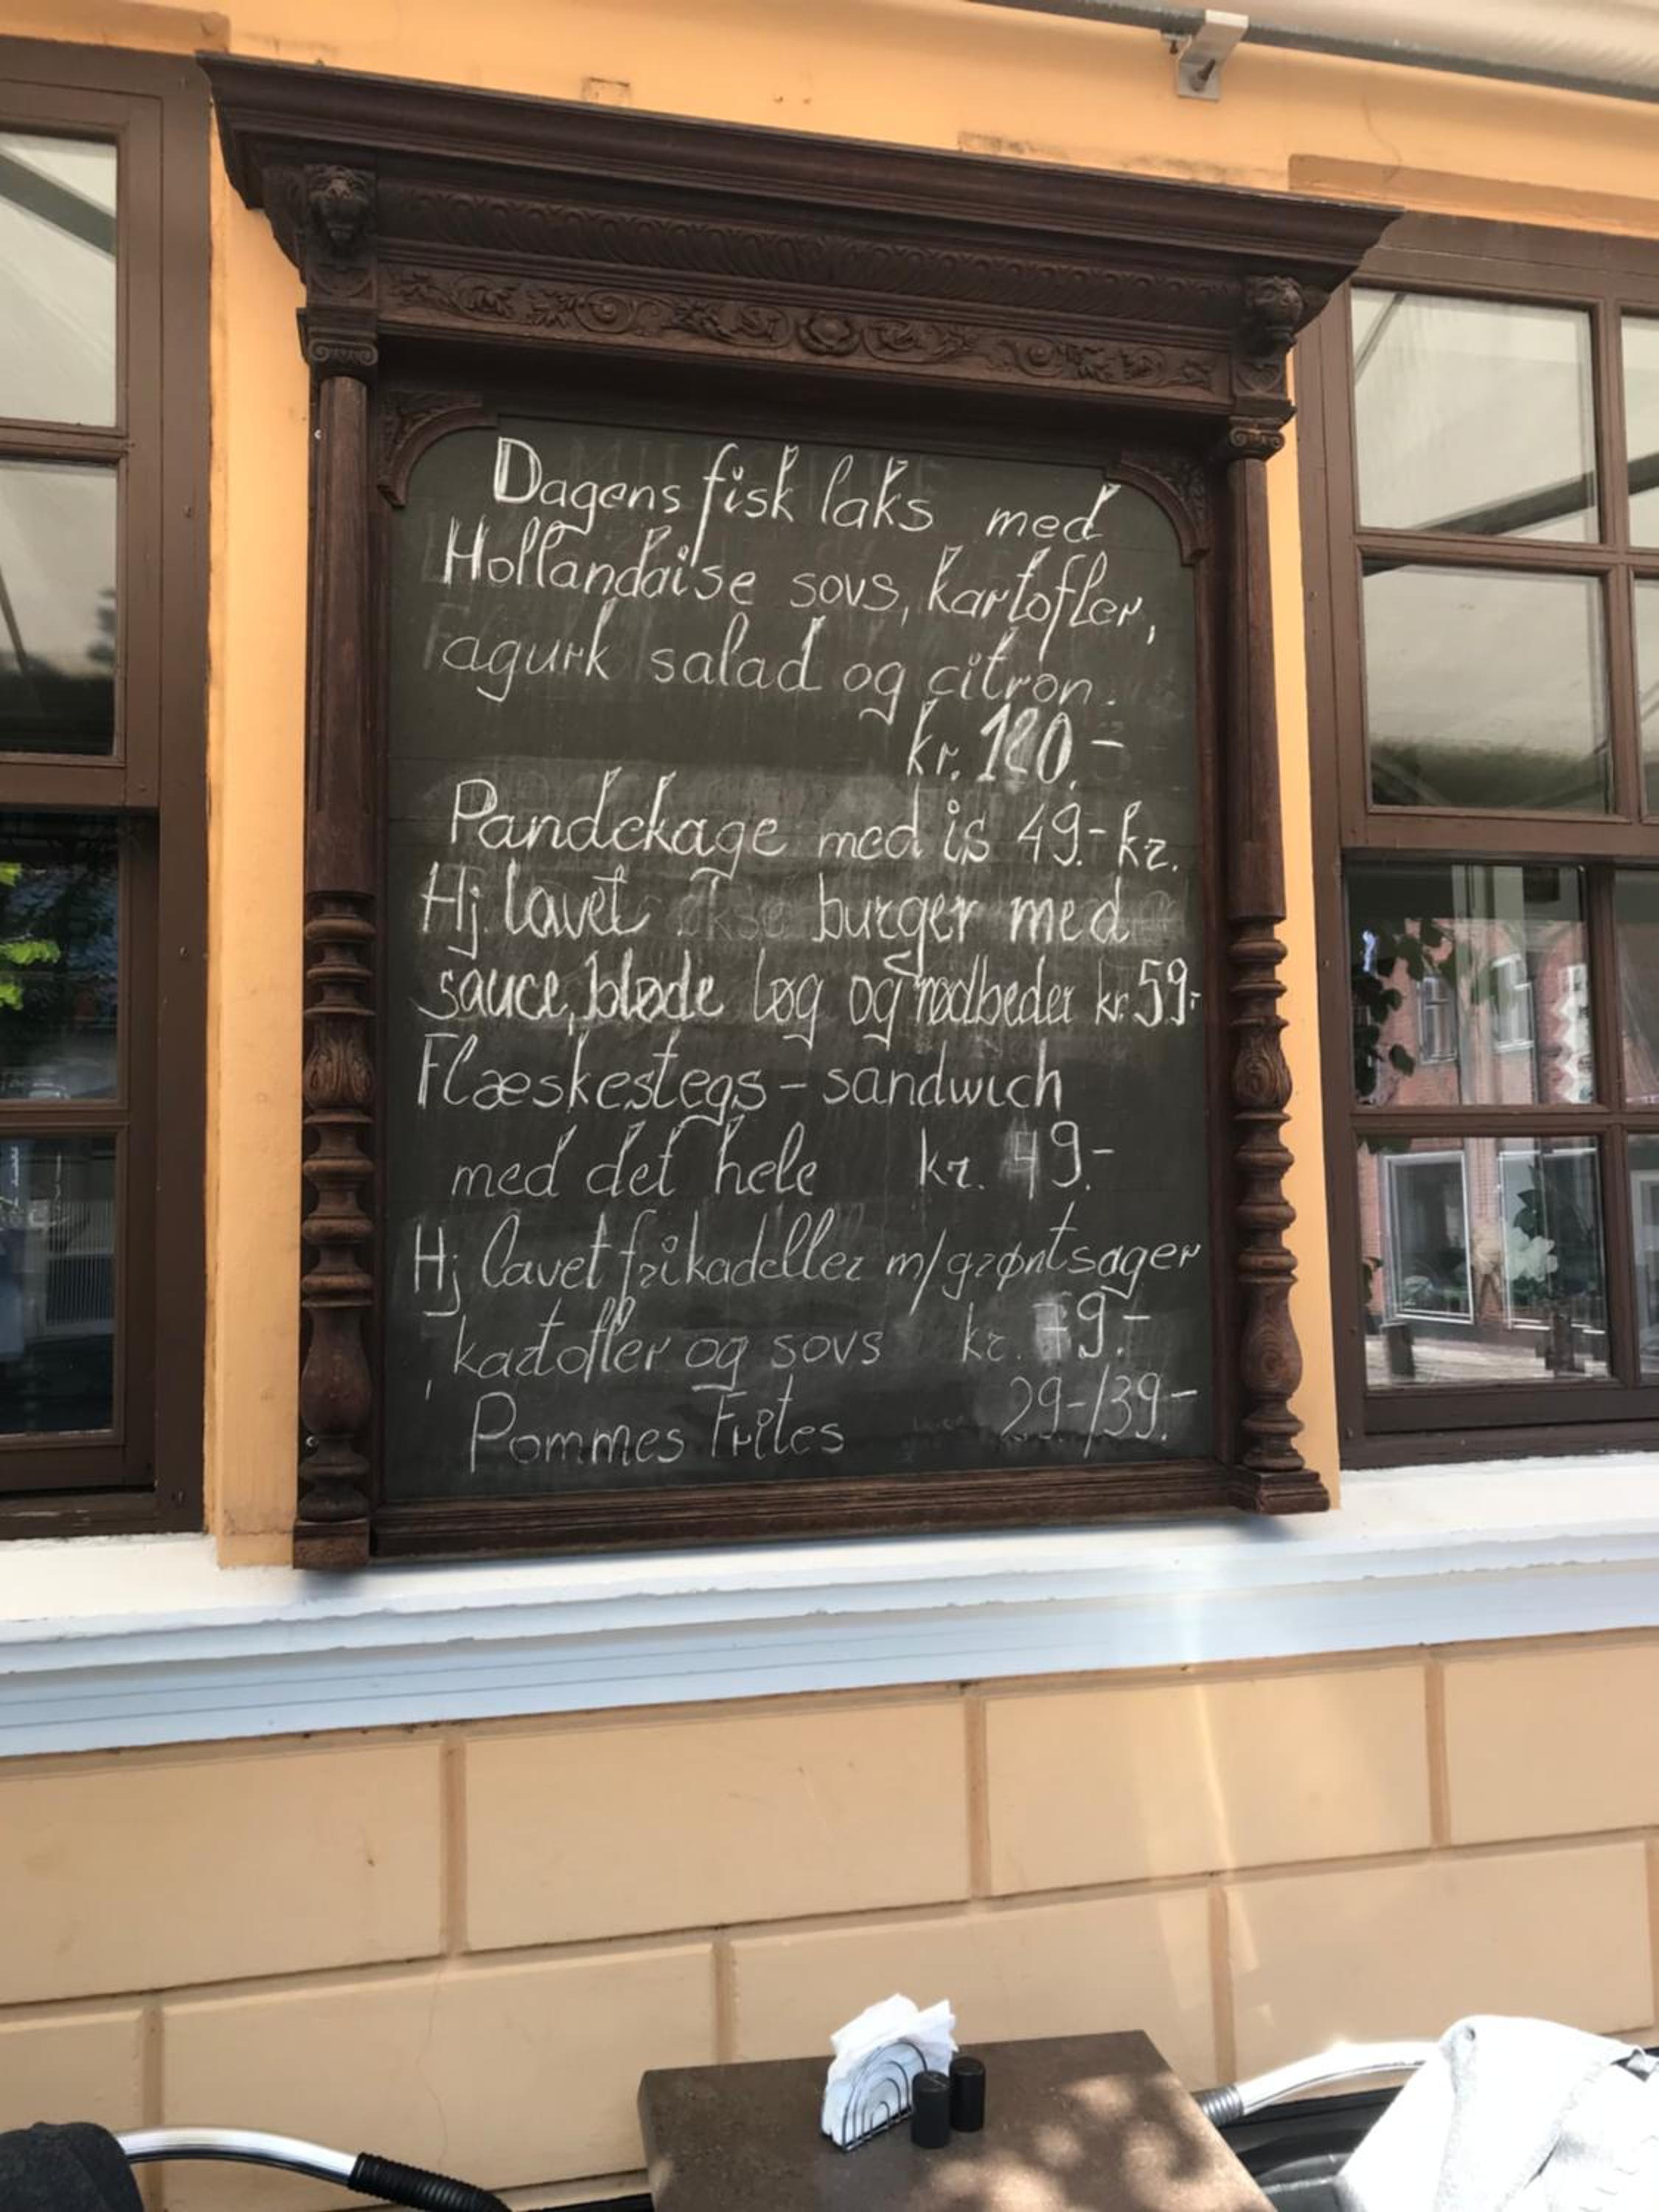 Dagens fisk laks med
Hollandaise sovs, kartofler,
agurk salad og citron.
kr. 120.-
Pandekage med is 49.- kr.
Hj. lavet okse burger med
sauce, bløde løg og rødbeder kr. 59.-
Flæskestegs - sandwich
med det hele kr. 49.-
Hj lavet frikadeller m/grøntsager
, kartofler og sovs kr. 79.-
Pommes Frites 29.-/39.-